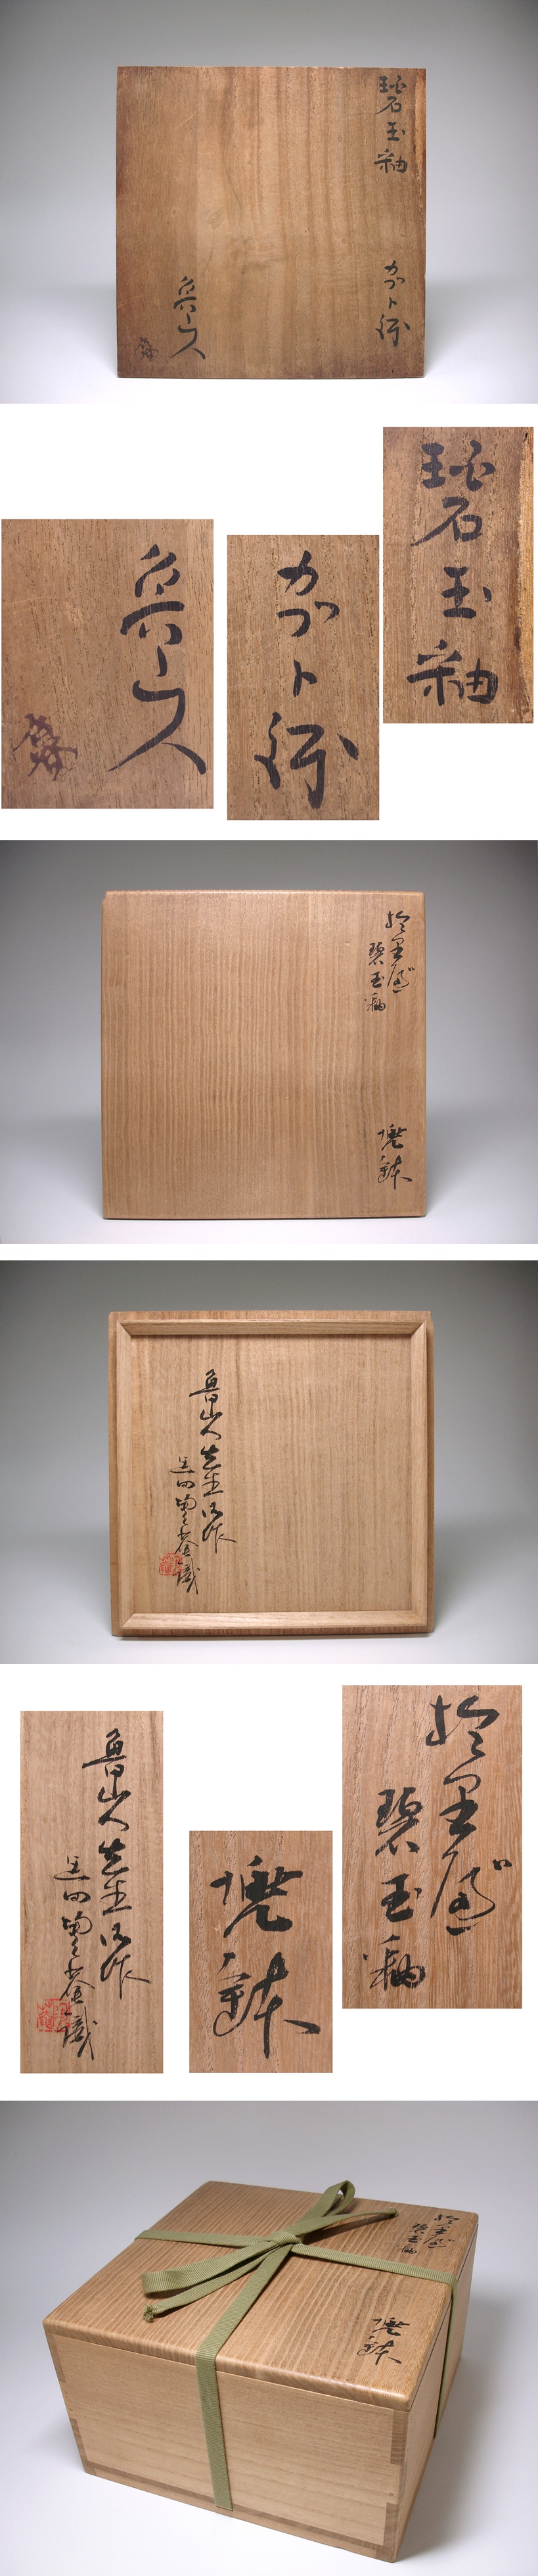 碧玉釉
カブト鉢
魯山人
碧玉釉
カブト鉢
魯山人
於里遍゛
碧玉釉
兜鉢
魯山人先生御作
黒田陶々菴識
於里遍゛
碧玉釉
兜鉢
魯山人先生御作
黒田陶々菴識
於里遍゛
碧玉釉
兜鉢